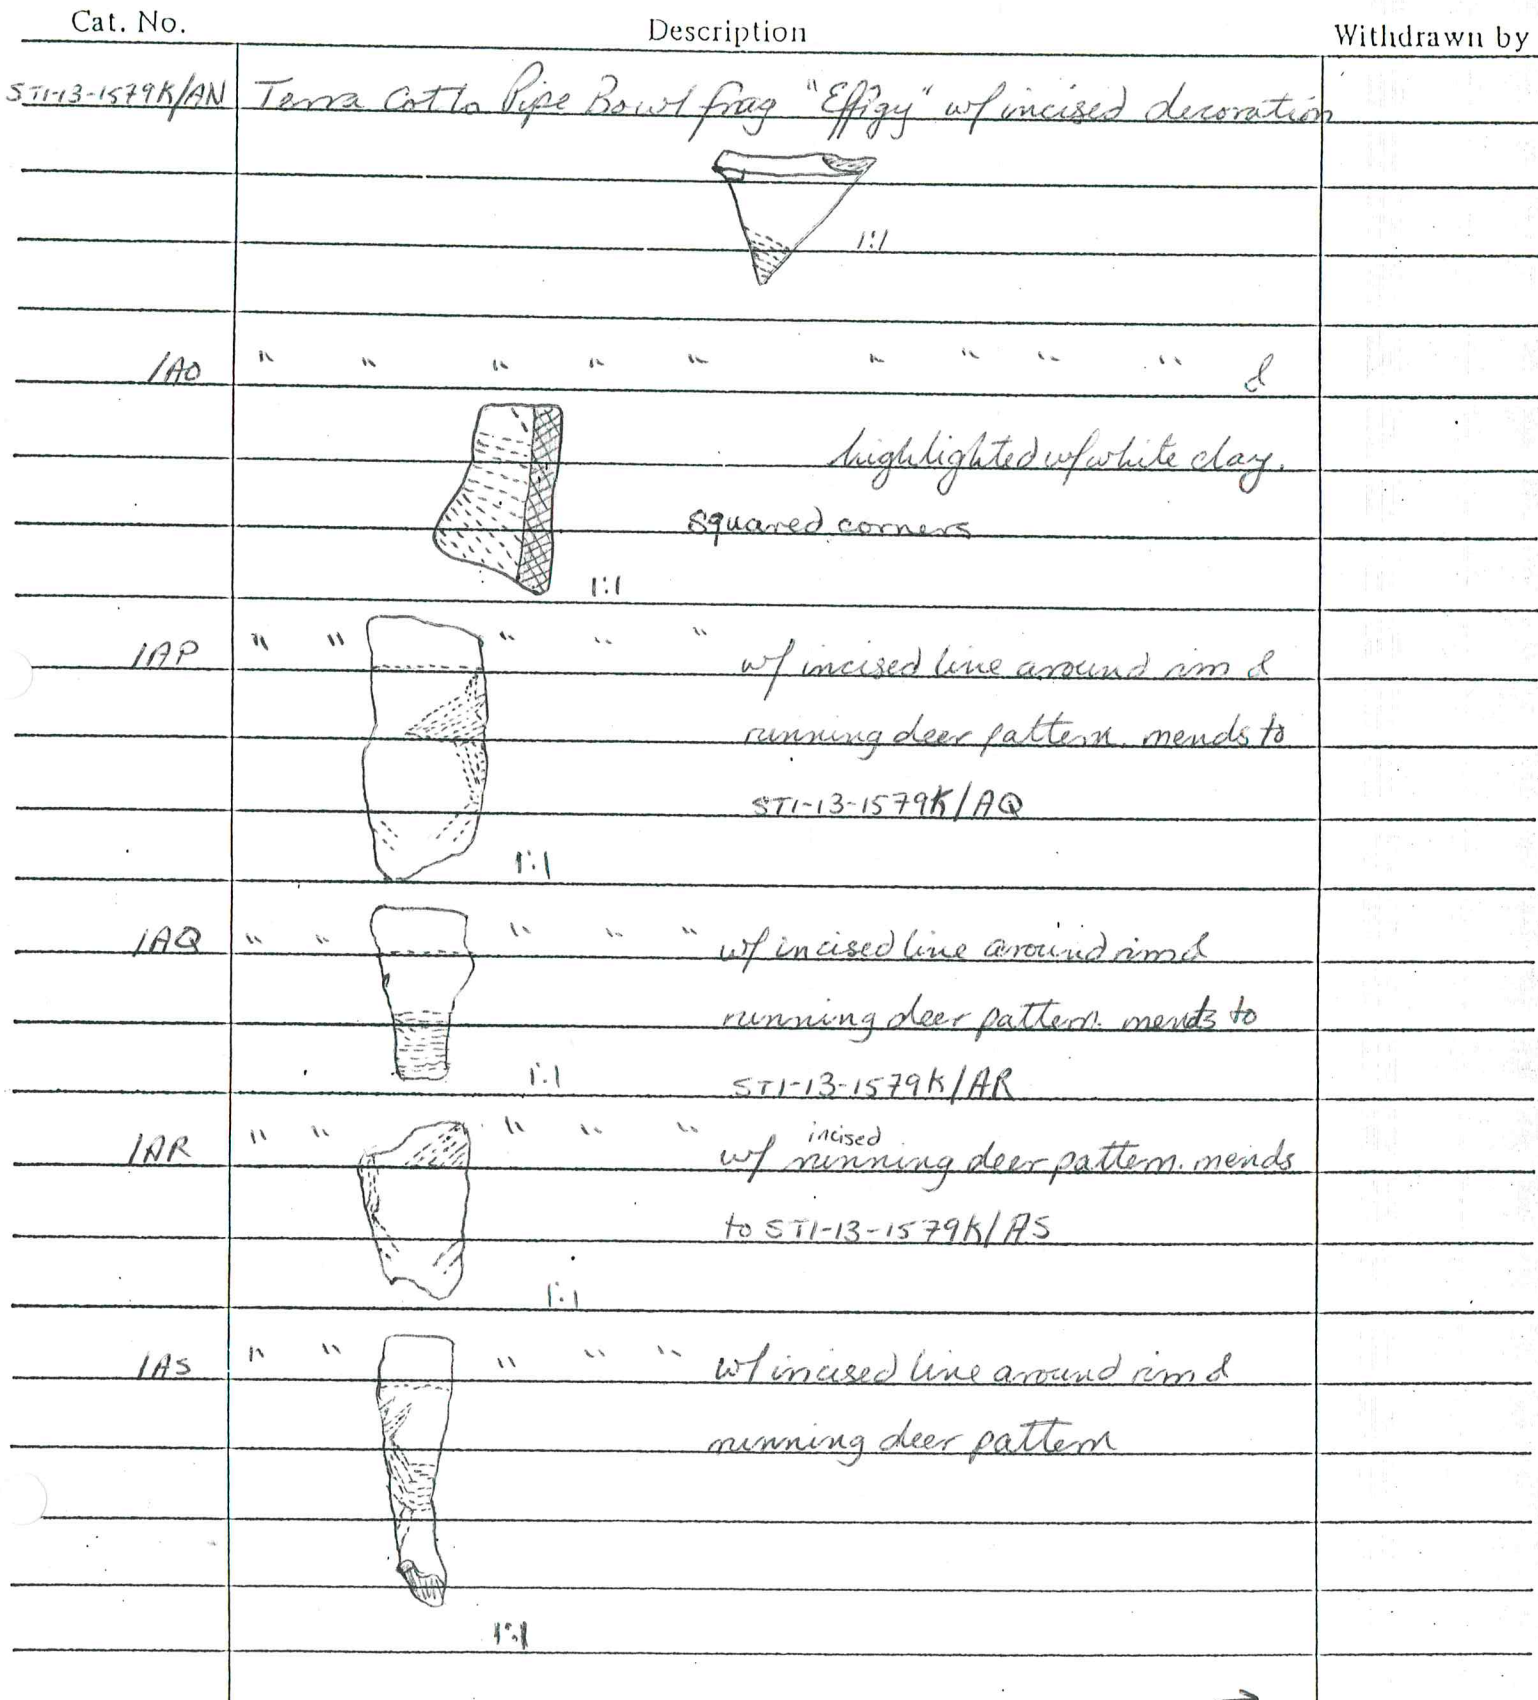 Cat. No. Description Withdrawn by
ST1-13-1579K/AN Terra Cotta Pipe Bowl frag "Effigy" w/ incised decoration
1:1
/AO " " " " " " " " " &
highlighted w/ white clay.
squared corners
1:1
/AP " " " " "
w/ incised line around rim &
running deer pattern. mends to
ST1-13-1579K/AQ
1:1
/AQ " " " " " w/ incised line around rim &
running deer pattern. mends to
1:1 ST1-13-1579K/AR
/AR " " " " " w/ incised running deer pattern. mends
to ST1-13-1579K/AS
1:1
/AS " " " " " w/ incised line around rim &
running deer pattern
1:1
→